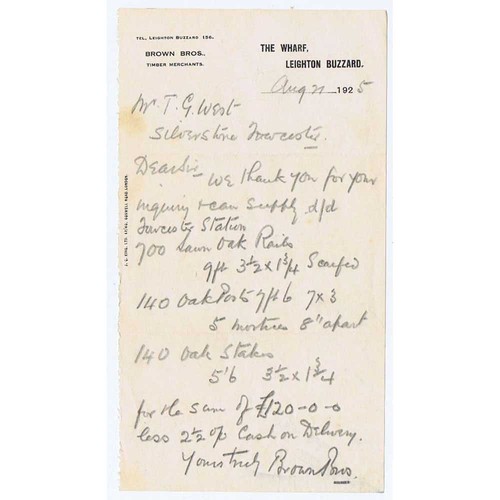 TEL. LEIGHTON BUZZARD 126.
BROWN BROS.,
TIMBER MERCHANTS.
THE WHARF,
LEIGHTON BUZZARD.
Aug 21 1925
Mr T. G. West
Silverstone Towcester.
Dear Sir
We thank you for your
inquiry & can supply d/d
Towcester Station
700 sawn Oak Rails
9ft 3½ x 1¾ Scarfed
140 Oak Posts 7ft 6 7 x 3
5 mortices 8" apart
140 Oak Stakes
5'6 3½ x 1¾
for the sum of £120-0-0
less 2½ % Cash on Delivery.
Yours truly Brown Bros.